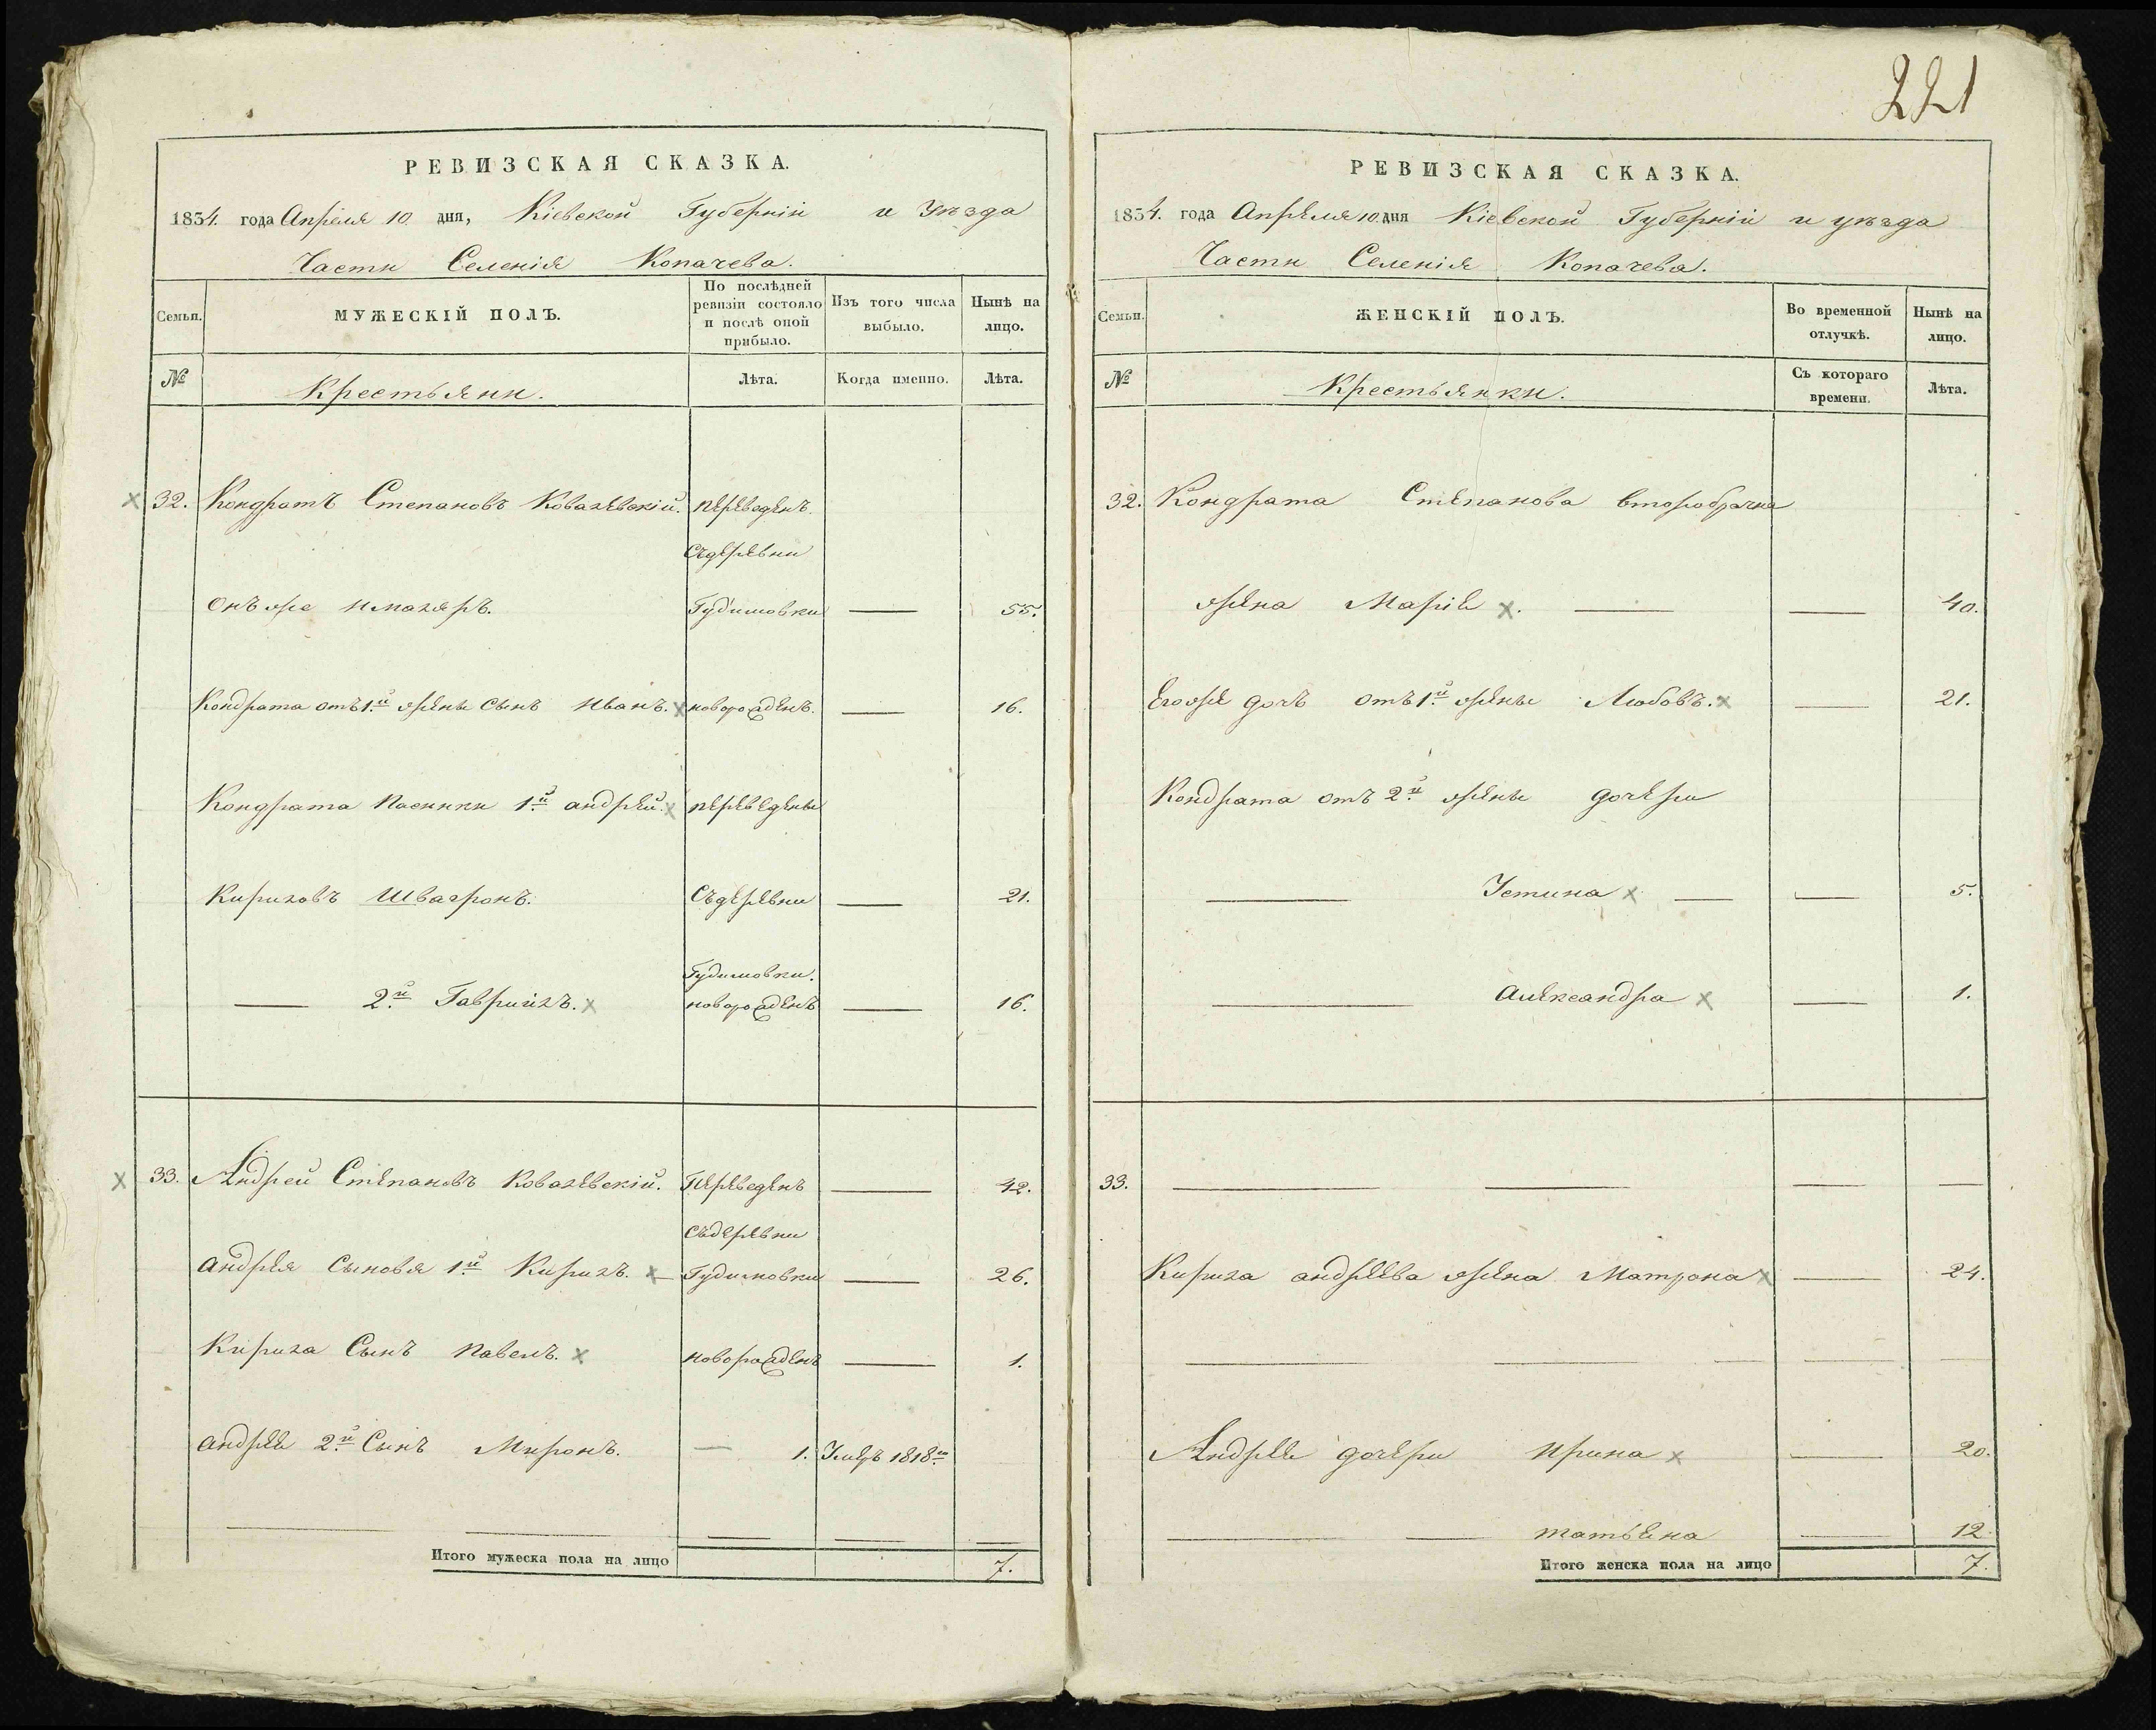 221
РЕВИЗСКАЯ СКАЗКА.
1834. года Апрѣля 10. дня, Кіевской Губерніи и Уѣзда
Части Селенія Копачева.
Семьи.
МУЖЕСКІЙ ПОЛЪ.
По послѣдней ревизіи состояло и послѣ оной прибыло.
Изъ того числа выбыло.
Нынѣ на лицо.
№
Крестьяни.
Лѣта.
Когда именно.
Лѣта.
32. Кондратъ Степановъ Ковалевскій. переведенъ
съ деревни
онъ же Гудимовки — 55.
Кондрата отъ 1й жены сынъ Иванъ. новорожденъ. — 16.
Кондрата Пасинки 1й андрей. переведены
Кириловъ съ деревни — 21.
Гудимовки.
— 2й Гавриилъ. новорожденъ — 16.
33. Андрей Степановъ Ковалевскій. Переведенъ — 42.
съ деревни
андрея Сыновя 1й Кирилъ. — Гудимовки — 26.
Кирила Сынъ Павелъ. новорожденъ — 1.
андрея 2й Сынъ Миронъ. — 1. Умеръ 1818го
Итого мужеска пола на лицо 7.
РЕВИЗСКАЯ СКАЗКА.
1834. года Апрѣля 10 дня Кіевской Губерніи и уѣзда
Части Селенія Копачева.
Семьи.
ЖЕНСКІЙ ПОЛЪ.
Во временной отлучкѣ.
Нынѣ на лицо.
№
Крестьянки.
Съ котораго времени.
Лѣта.
32. Кондрата Степанова второбрачна
жена Марія. — — 40.
Егоже дочъ отъ 1й жены Любовъ. — 21.
Кондрата отъ 2й жены дочери
— Устина — — 5.
— Александра — 1.
33. — — — —
Кирила андреева жена Матрона — 24.
— — — — —
Андрея дочери Ирина — 20.
— — татьяна — 12
Итого женска пола на лицо 7.